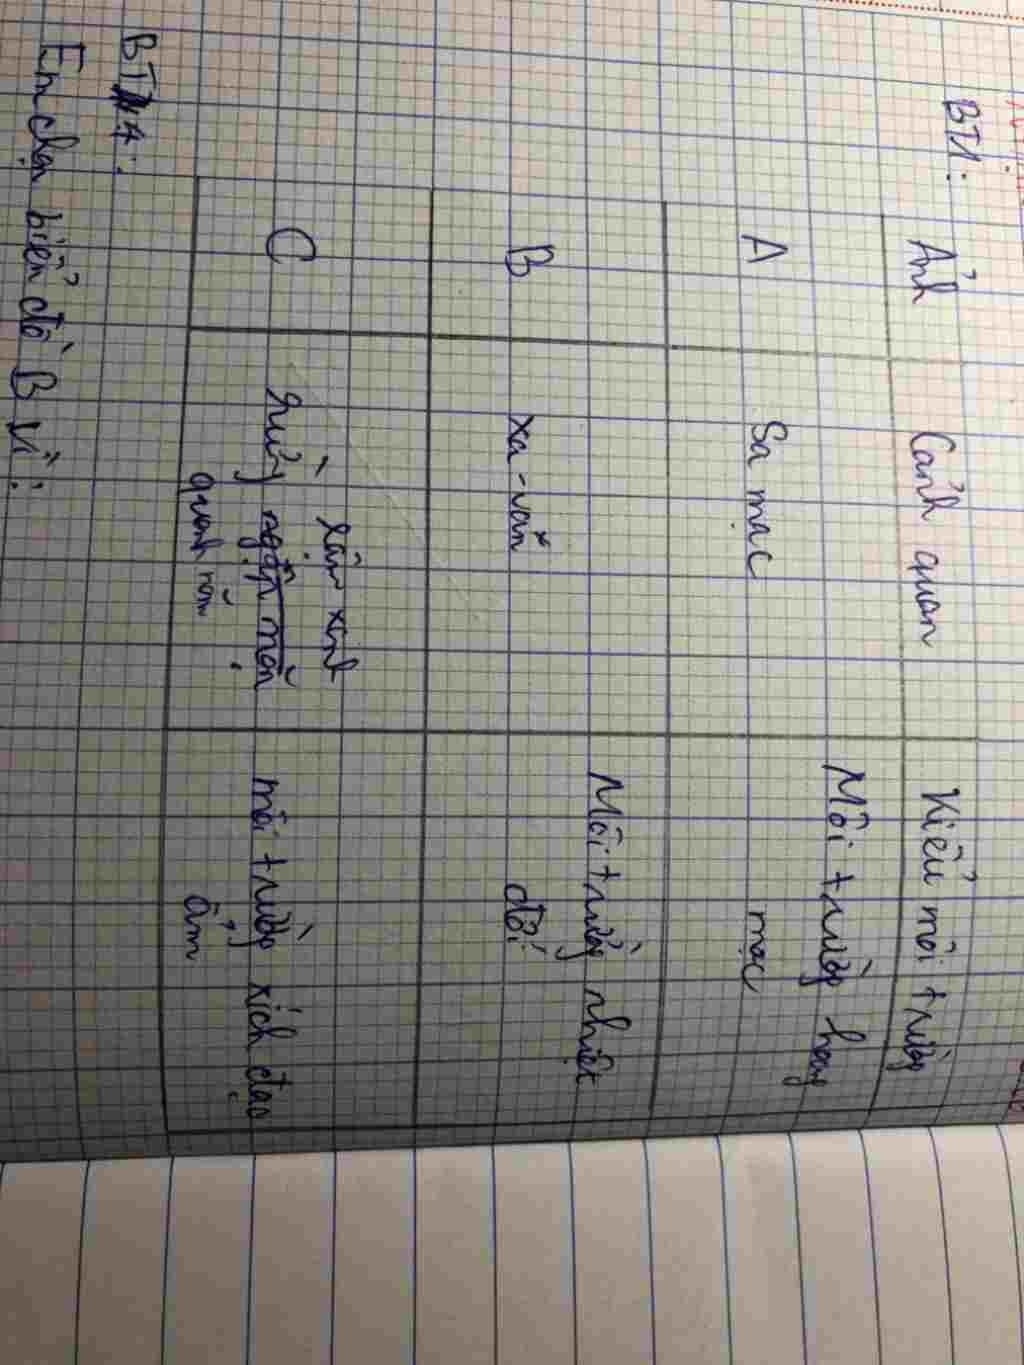 BT1:
Ảnh Cảnh quan Kiểu môi trường
A Sa mạc Môi trường hoang
mạc
B xa-van Môi trường nhiệt
đới
rậm xanh
C Rừng ngập mặn môi trường xích đạo
quanh năm ẩm
BT 4:
Em chọn biểu đồ B vì: